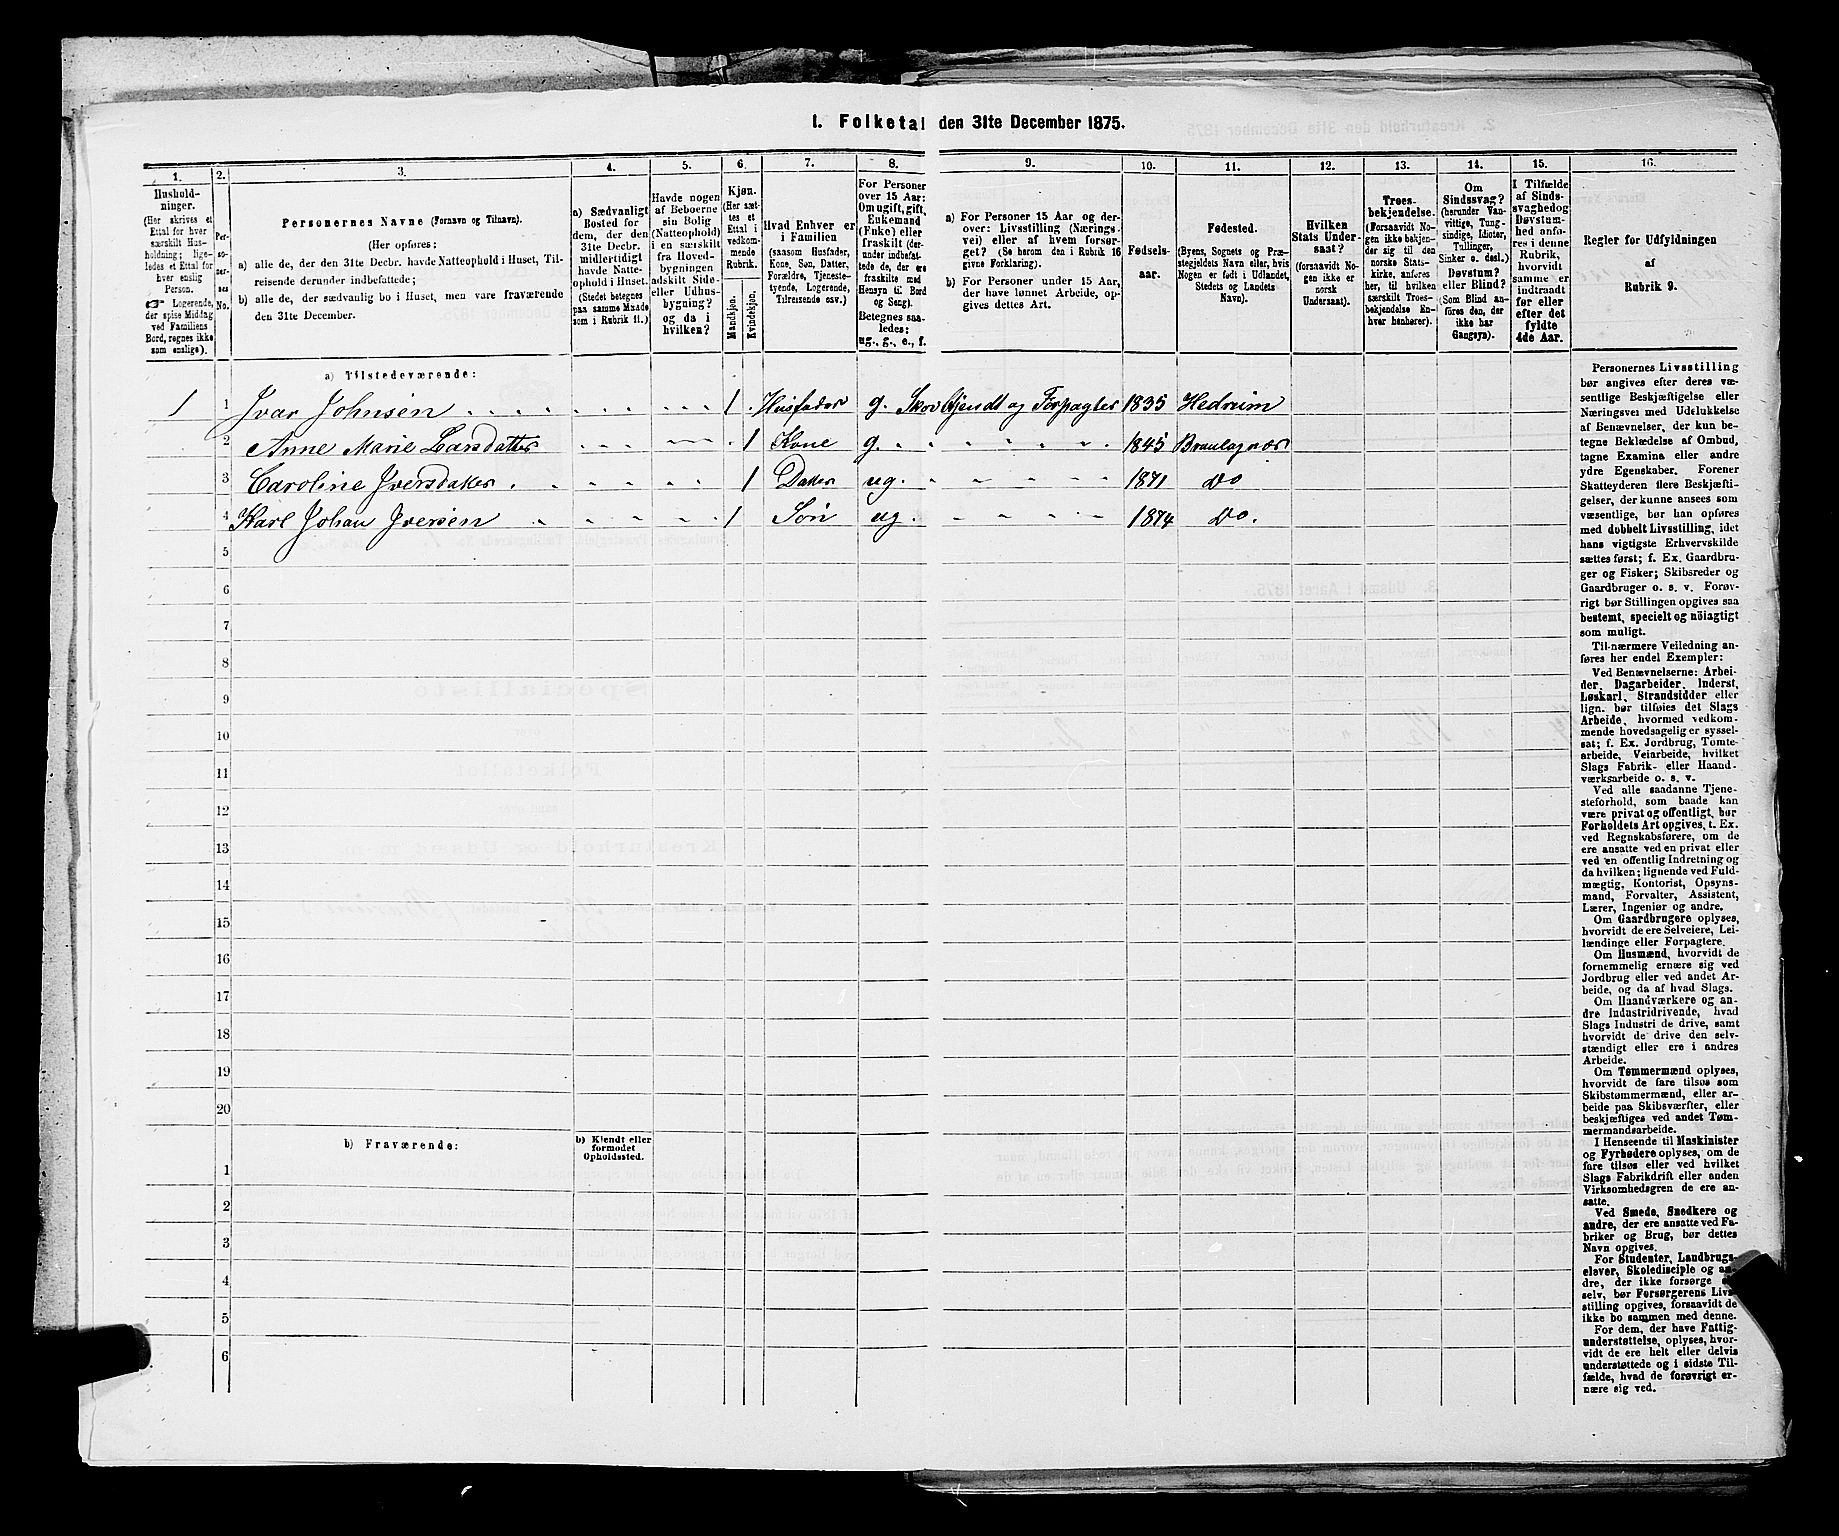 1. Folketal den 31te December 1875.
1.
Hushold-
ninger.
(Her skrives et
Ettal for hver
særskilt Hus-
holdning; lige-
ledes et Ettal for
hver enslig
Person.
☞ Logerende,
der spise Middag
ved Familiens
Bord, regnes ikke
som enslige).
2.
Per-
so-
ner-
nes
No.
3.
Personernes Navne (Fornavn og Tilnavn).
(Her opføres:
a) alle de, der den 31te Decbr. havde Natteophold i Huset, Til-
reisende derunder indbefattede;
b) alle de, der sædvanlig bo i Huset, men vare fraværende
den 31te December.
4.
a) Sædvanligt
Bosted for
dem, der den
31te Decbr.
midlertidigt
havde Natte-
ophold i Huset.
(Stedet betegnes
paa samme Maade
som i Rubrik 11.)
5.
Havde nogen
af Beboerne
sin Bolig
(Natteophold)
i en særskilt
fra Hoved-
bygningen
adskilt Side-
eller Udhus-
bygning?
og da i
hvilken?
6.
Kjøn.
(Her sæt-
tes et
Ettal i
vedkom-
mende
Rubrik.
Mandkjøn.
Kvindekjøn.
7.
Hvad Enhver er
i Familien
(saasom Husfader,
Kone, Søn, Datter,
Forældre, Tjeneste-
tyende, Logerende,
Tilreisende osv.)
8.
For Personer
over 15 Aar:
Om ugift, gift,
Enkemand
(Enke) eller
fraskilt (der-
under indbefat-
tede de, der ere
fraskilte med
Hensyn til Bord
og Seng).
Betegnes saa-
ledes:
ug., g., e., f.
9.
a) For Personer 15 Aar og der-
over: Livsstilling (Nærings-
vei) eller af hvem forsør-
get? (Se herom den i Rubrik 16
givne Forklaring).
b) For Personer under 15 Aar,
der have lønnet Arbeide, op-
gives dettes Art.
10.
Fødsels-
aar.
11.
Fødested.
(Byens, Sognets og Præ-
stegjeldets Navn eller, hvis
Nogen er født i Udlandet,
Stedets og Landets
Navn).
12.
Hvilken
Stats Under-
saat?
(forsaavidt No-
gen ikke er
norsk
Undersaat).
13.
Troes-
bekjendelse.
(Forsaavidt No-
gen ikke bekjen-
der sig til den
norske Stats-
kirke, anføres
her, til hvilken
særskilt Troes-
bekjendelse En-
hver henhører).
14.
Om
Sindssvag?
(herunder Van-
vittige, Tung-
sindige, Idioter,
Tullinger,
Sinker o. desl.)
Døvstum?
eller Blind?
(Som Blind an-
føres den, der
ikke har
Gangsyn).
15.
I Tilfælde
af Sinds-
svaghed og
Døvstum-
hed anfø-
res i denne
Rubrik,
hvorvidt
samme er
indtraadt
før eller
efter det
fyldte
4de Aar.
16.
Regler for Udfyldningen
af
Rubrik 9.
a) Tilstedeværende:
1 1 Ivar Johnsen 1 Husfader g. Skovbetjendt og Forpagter 1835 Hedrum
2 Anne Marie Larsdatter 1 Kone g. 1845 Brunlagnæs
3 Caroline Iversdatter 1 Datter ug. 1871 do
4 Karl Johan Iversen 1 Søn ug. 1874 do.
5
6
7
8
9
10
11
12
13
14
15
16
17
18
19
20
b) Fraværende:
b) Kjendt eller
formodet
Opholdssted.
1
2
3
4
5
6
Personernes Livsstilling
bør angives efter deres væ-
sentlige Beskjæftigelse eller
Næringsvei med Udelukkelse
af Benævnelser, der kun be-
tegne Beklædelse af Ombud,
tagne Examina eller andre
ydre Egenskaber. Forener
Skatteyderen flere Beskjæfti-
gelser, der kunne ansees som
væsentlige, bør han opføres
med dobbelt Livsstilling, idet
hans vigtigste Erhvervskilde
sættes først; f. Ex. Gaardbru-
ger og Fisker; Skibsreder og
Gaardbruger o. s. v. Forøv-
rigt bør Stillingen opgives saa
bestemt, specielt og nöiagtigt
som muligt.
Til nærmere Veiledning an-
føres her endel Exempler:
Ved Benævnelserne: Arbei-
der, Dagarbeider, Inderst,
Løskarl, Strandsidder eller
lign. bør tilføies det Slags
Arbeide, hvormed vedkom-
mende hovedsagelig er syssel-
sat; f. Ex. Jordbrug, Tomte-
arbeide, Veiarbeide, hvilket
Slags Fabrik- eller Haand-
værksarbeide o. s. v.
Ved alle saadanne Tjene-
steforhold, som baade kan
være privat og offentligt, bør
Forholdets Art opgives, t. Ex.
ved Regnskabsførere, om de
ere ansatte ved en privat eller
ved en offentlig Indretning og
da hvilken; lignende ved Fuld-
mægtig, Kontorist, Opsyns-
mand, Forvalter, Assistent,
Lærer, Ingeniør og andre.
Om Gaardbrugere oplyses,
hvorvidt de ere Selveiere, Lei-
lændinge eller Forpagtere.
Om Husmænd, hvorvidt de
fornemmelig ernære sig ved
Jordbrug eller ved andet Ar-
beide, og da af hvad Slags.
Om Haandværkere og an-
dre Industridrivende, hvad
Slags Industri de drive, samt
hvorvidt de drive den selv-
stændigt eller ere i andres
Arbeide.
Om Tømmermænd oplyses,
hvorvidt de fare tilsøs som
Skibstømmermænd, eller ar-
beide paa Skibsværfter, eller
beskjæftiges ved andet Tøm-
mermandsarbeide.
I Henseende til Maskinister
og Fyrbødere oplyses, om de
fare tilsøs eller ved hvilket
Slags Fabrikdrift eller anden
Virksomhedsgren de ere an-
satte.
Ved Smede, Snedkere og
andre, der ere ansatte ved Fa-
briker og Brug, bør dettes
Navn opgives.
For Studenter, Landbrugs-
elever, Skoledisciple og an-
dre, der ikke forsørge
selv, bør Forsørgerens Livs-
stilling opgives, forsaavidt de
ikke bo sammen med denne.
For dem, der have Fattig-
understøttelse, oplyses, hvor-
vidt de ere helt eller delvis
understøttede og i sidste Til-
fælde, hvad de forøvrigt er-
nære sig ved.